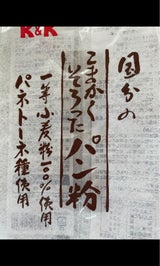 K&K
国分の
こまかく
そろった
パン粉
一等小麦粉100%使用
パネトーネ種使用